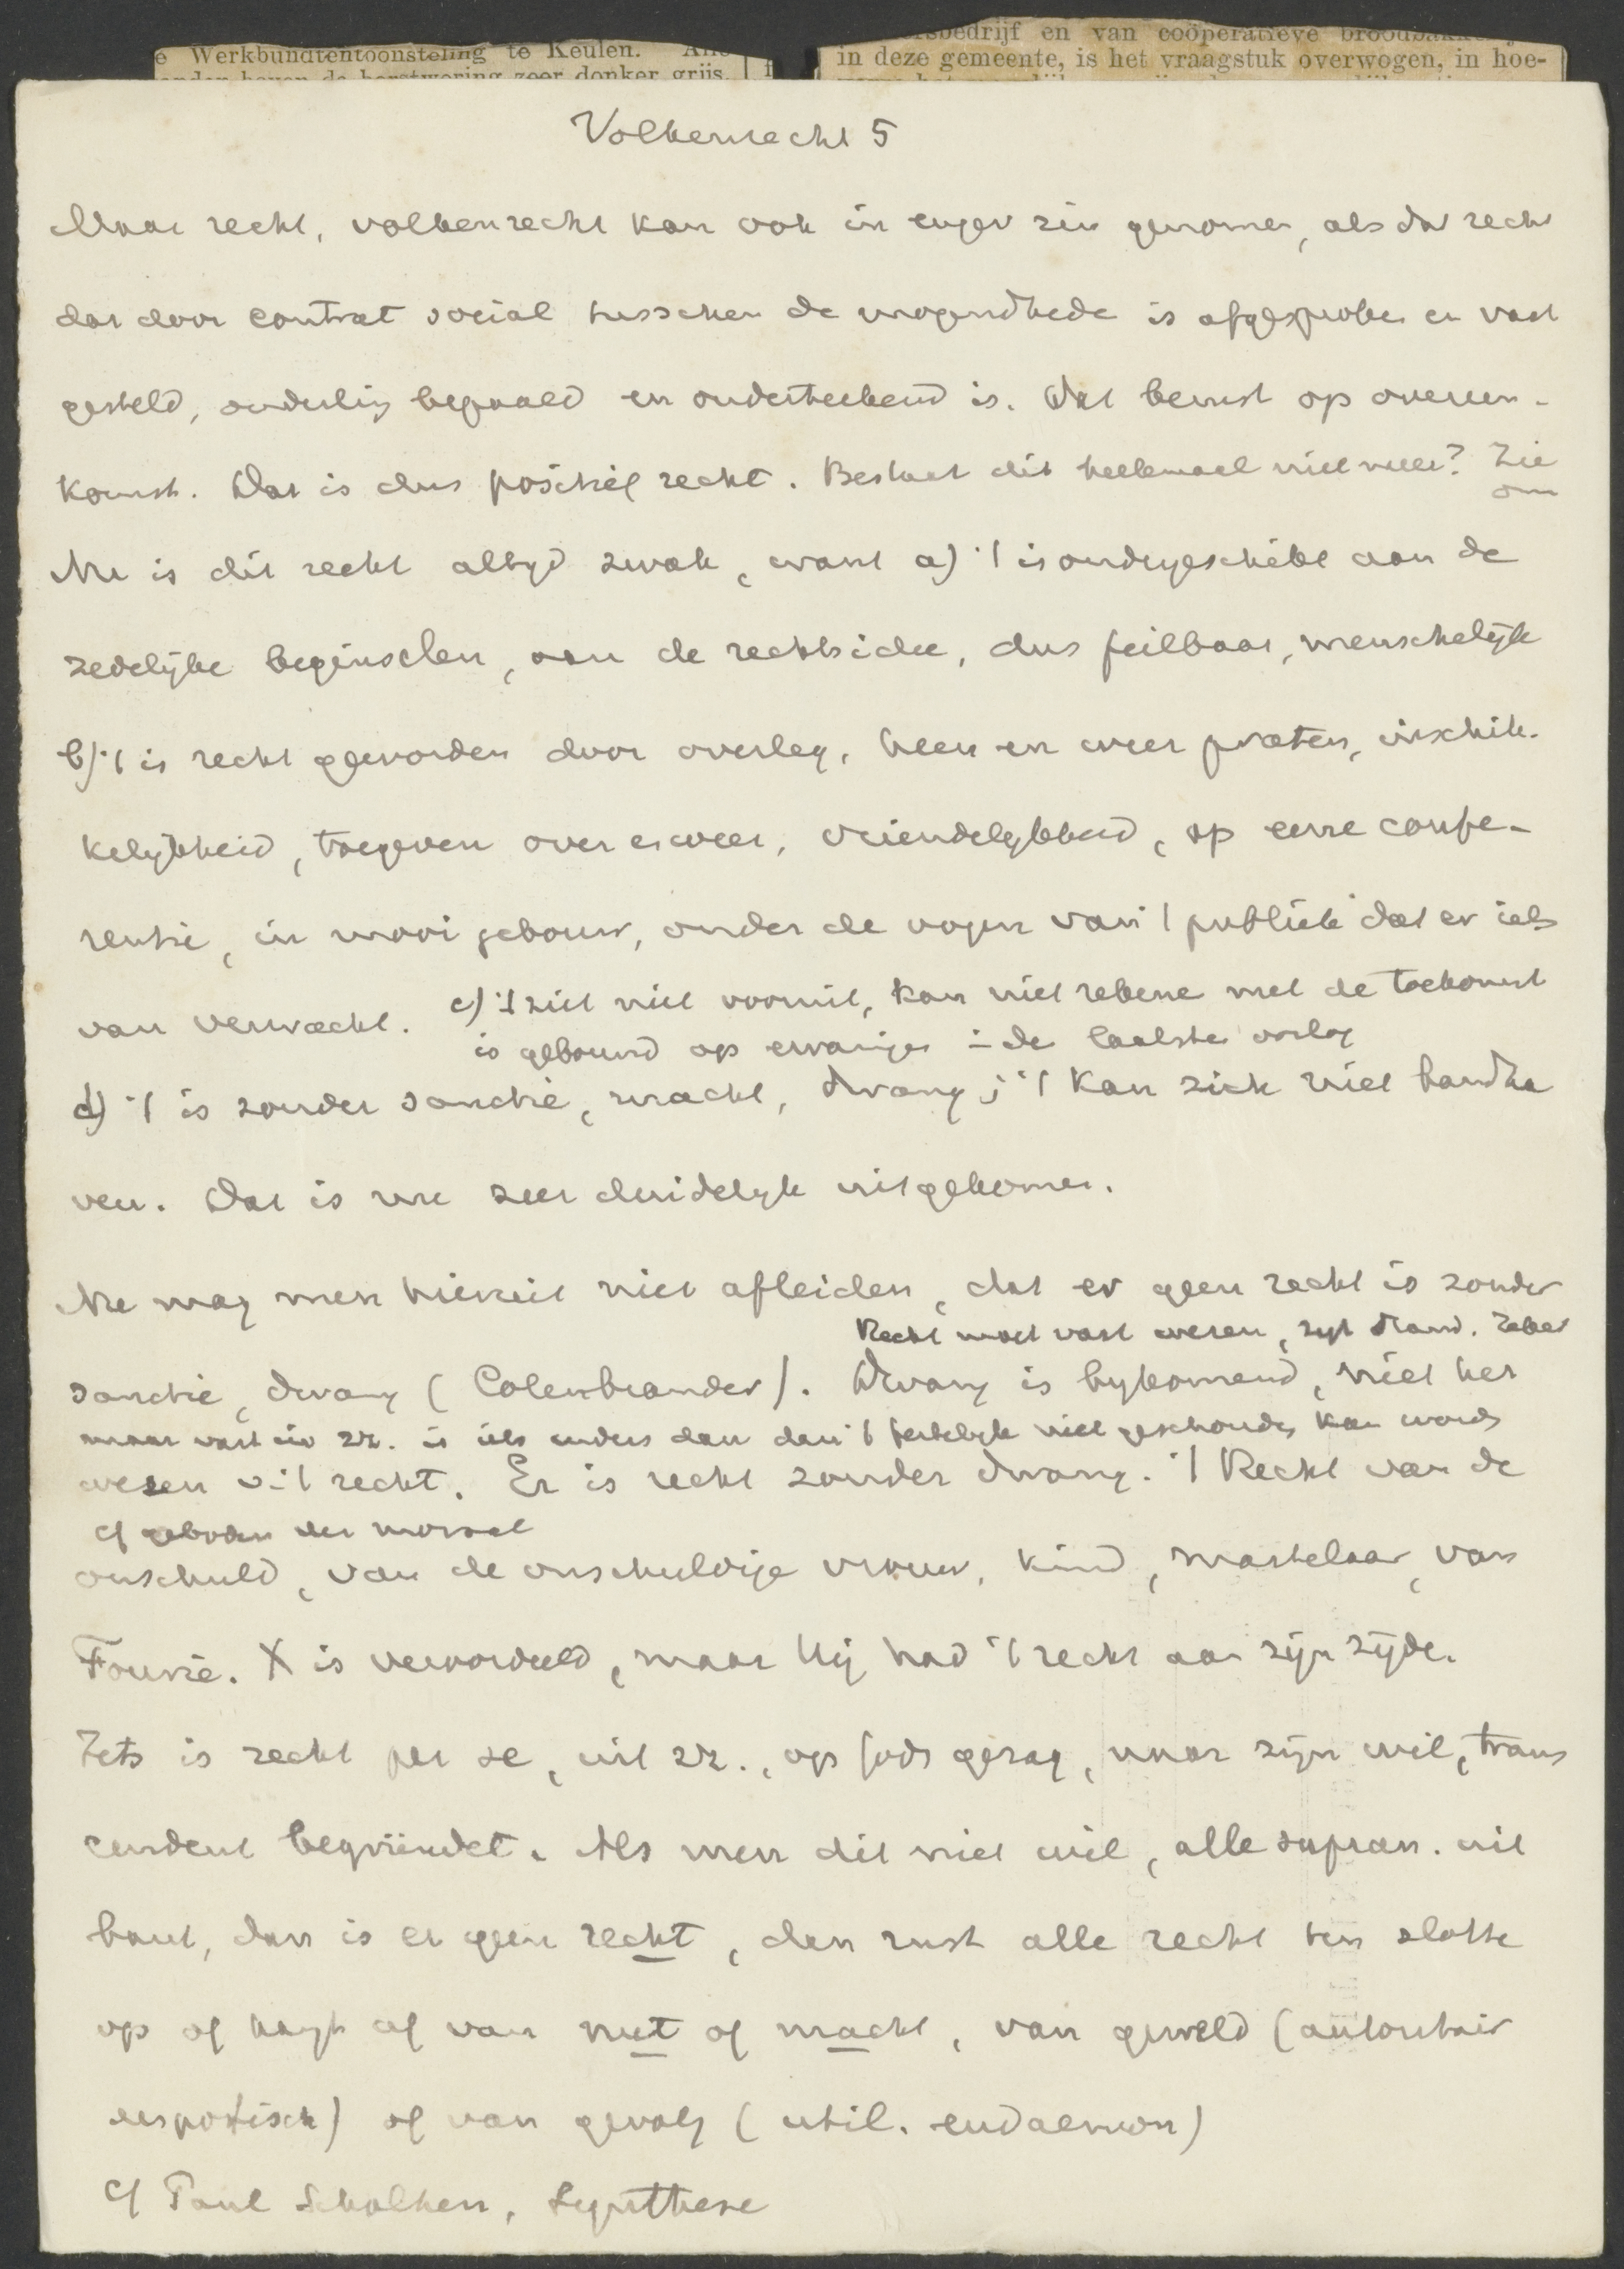 e Werkbundtentoonsteling te Keulen. Alle
anden boven de borstwering zeer donker grijs.
rsbedrijf en van coöperatieve broodbakke
in deze gemeente, is het vraagstuk overwogen, in hoe-
Volkenrecht 5
Maar recht, volkenrecht kan ook in enger zin genomen, als dat recht
dat door contrat social tusschen de mogendhede is afgesproken en vast
gesteld, onderling bepaald en onderteekend is. Dat berust op overeen-
komst. Dat is dus positief recht. Bestaat dit heelemaal niet meer? Zie
om
Nu is dit recht altyd zwak, want a) 't is ondergeschikt aan de
zedelijke beginselen, aan de rechtsidee, dus feilbaar, menschelijk
b) 't is recht geworden door overleg, heen en weer praten, inschik-
kelijkheid, toegeven over en weer, vriendelykheid, op eene confe-
rentie, in mooi gebouw, onder de oogen van 't publiek dat er iets
van verwacht. c) 't ziet niet vooruit, kan niet rekene met de toekomst
is gebouwd op ervaringen in de laatste oorlog
d) 't is zonder sanctie, macht, dwang; 't kan zich niet handha
ven. Dat is nu zeer duidelyk uitgekomen.
Nu mag men hieruit niet afleiden, dat er geen recht is zonder
Recht moet vast wezen, zegt Stand. Zeker
sanctie, dwang (Colenbrander). Dwang is bykomend, niet het
maar vast in zr. is iets anders dan dan 't feitelyk niet geschonden kan worde
wezen v. 't recht. Er is recht zonder dwang. 't Recht van de
cf geboden der moraal
onschuld, van de onschuldige vrouw, kind, martelaar, van
Fourie. X is veroordeeld, maar hij had 't recht aan zijn zijde.
Iets is recht per se, uit zr., op Gods gezag, naar zijn wil, trans
cendent begründet. Als men dit niet wil, alle supran. uit
bant, dan is er geen recht, dan rust alle recht ten slotte
op of hangt af van nut of macht, van geweld (autoritair
despotisch) of van gevolg (util. eudaemon)
cf Paul Scholten, Synthese